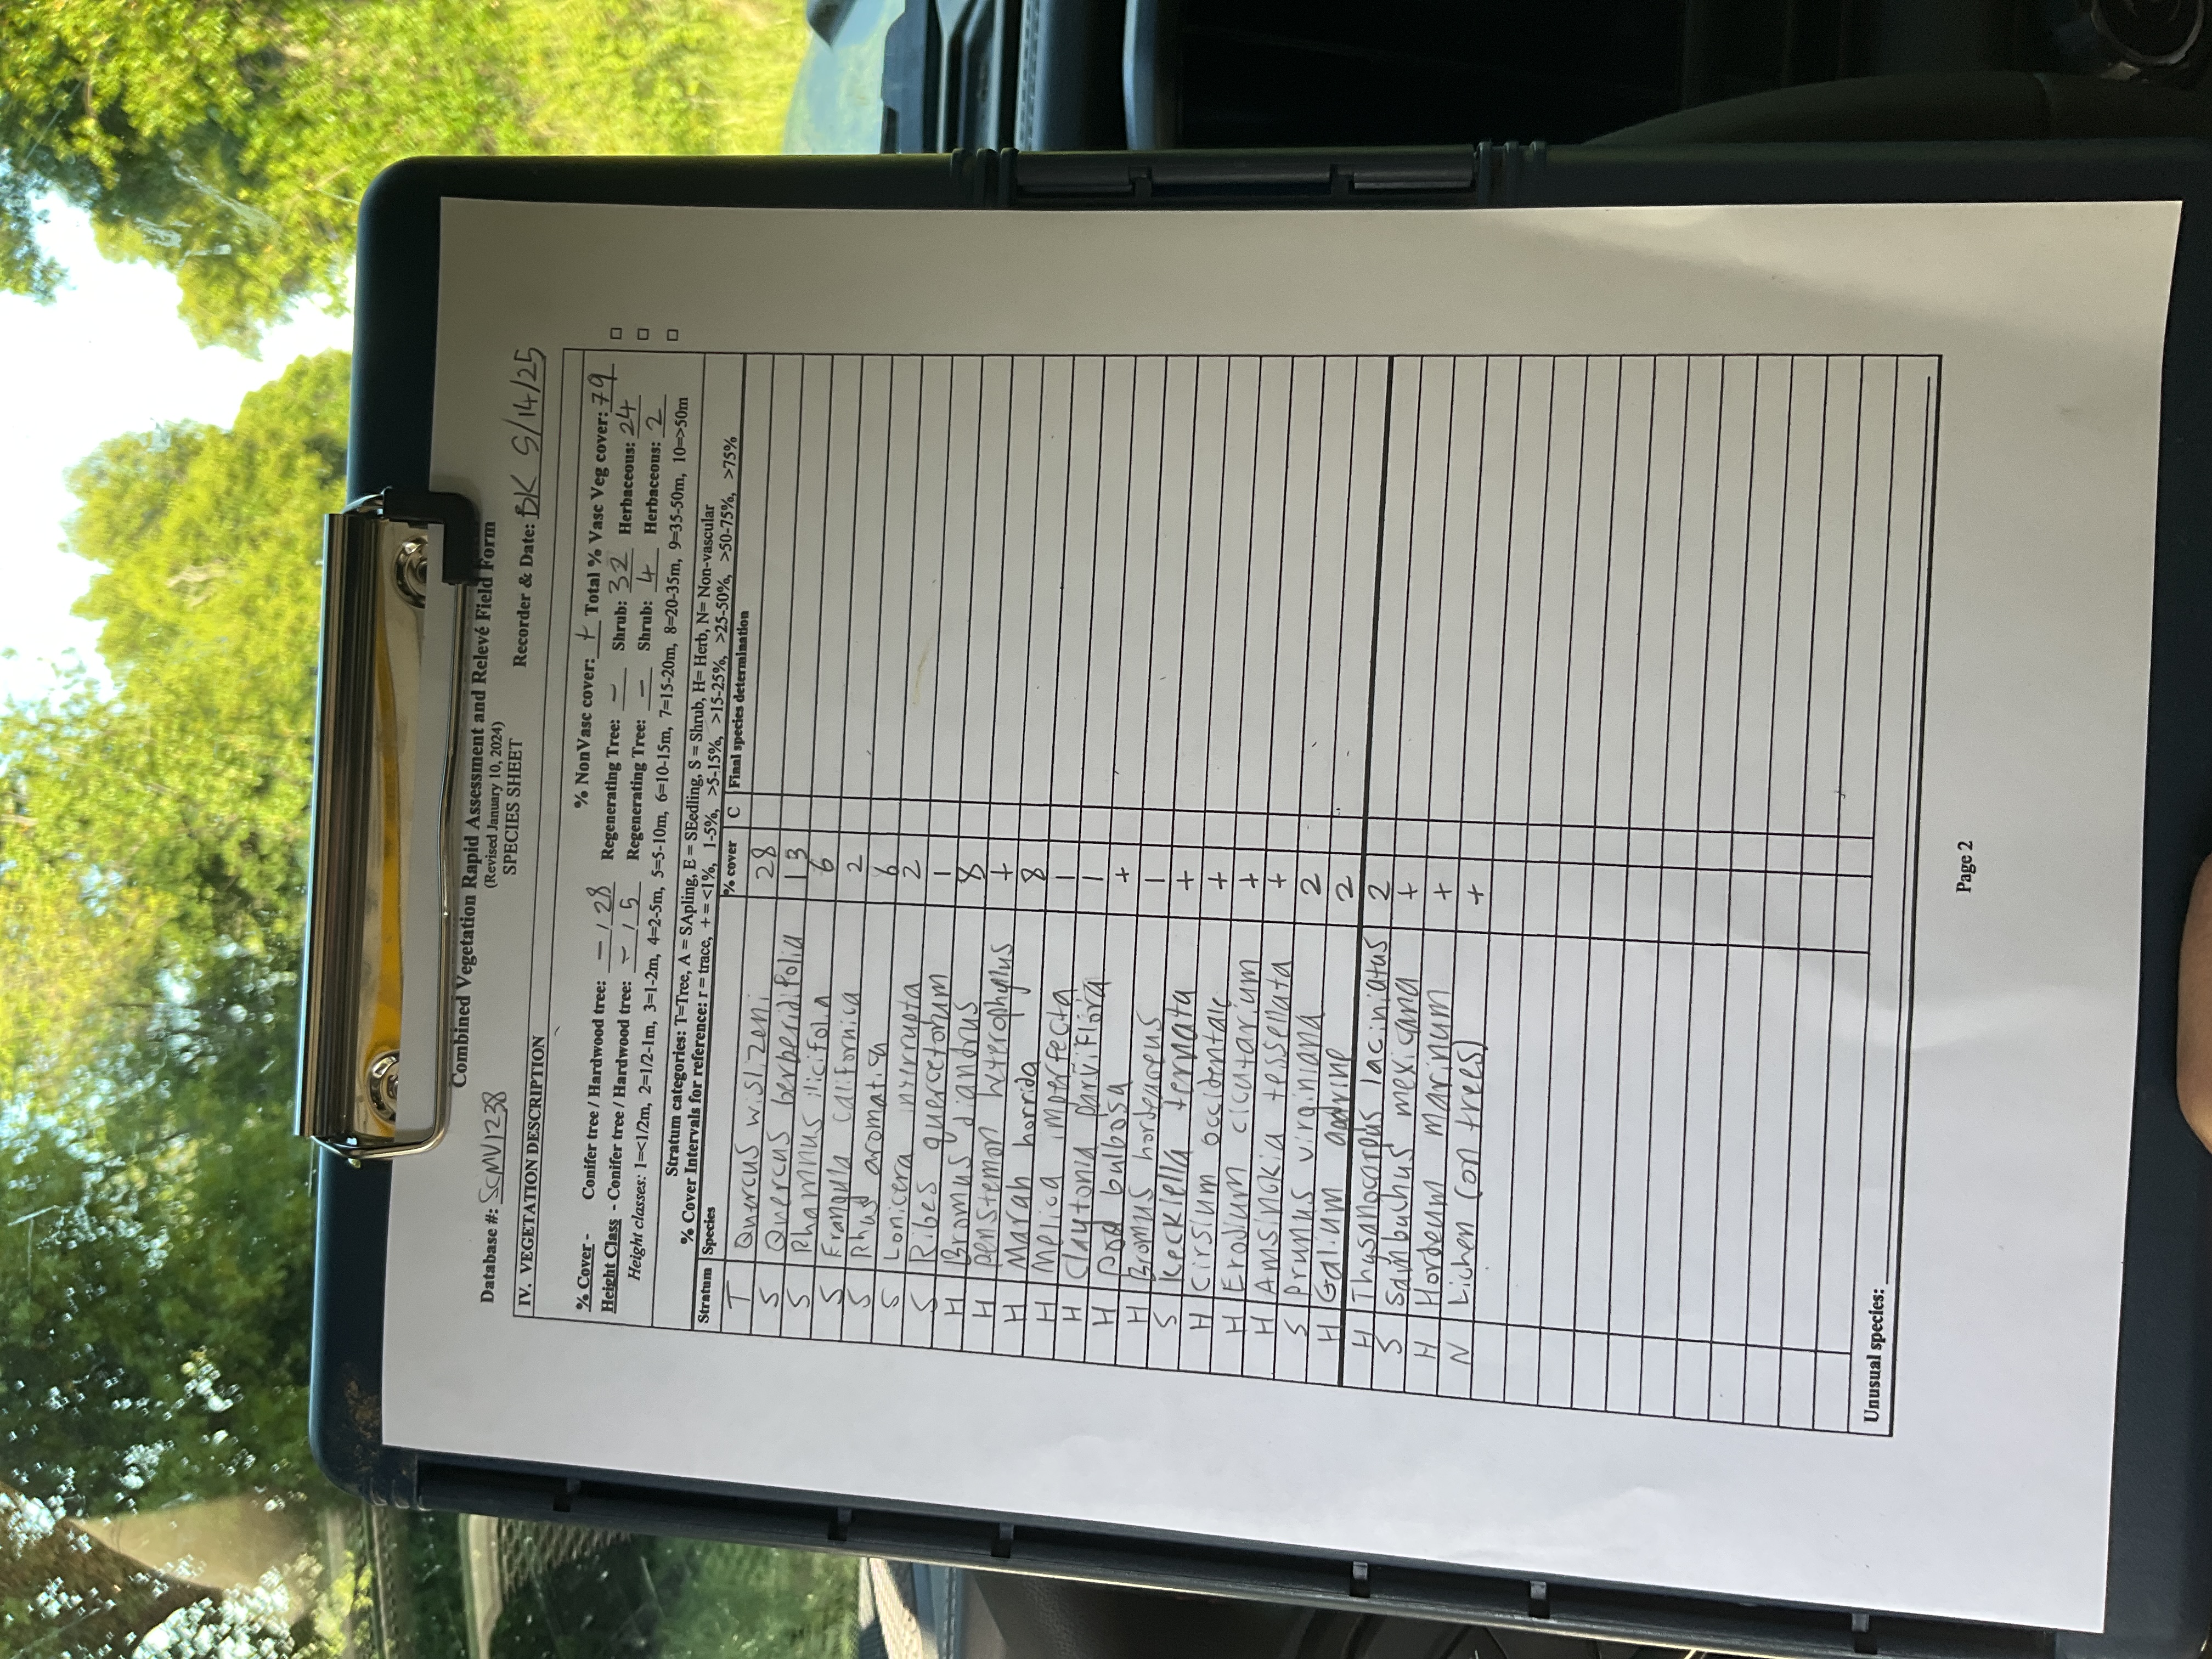 Combined Vegetation Rapid Assessment and Relevé Field Form
(Revised January 10, 2024)
SPECIES SHEET
Database #: SCMV1238 Recorder & Date: BK 5/14/25
IV. VEGETATION DESCRIPTION
% NonVasc cover: + Total % Vasc Veg cover: 79 □
% Cover - Conifer tree / Hardwood tree: — / 28 Regenerating Tree: — Shrub: 32 Herbaceous: 24 □
Height Class - Conifer tree / Hardwood tree: — / 5 Regenerating Tree: — Shrub: 4 Herbaceous: 2 □
Height classes: 1=<1/2m, 2=1/2-1m, 3=1-2m, 4=2-5m, 5=5-10m, 6=10-15m, 7=15-20m, 8=20-35m, 9=35-50m, 10=>50m
Stratum categories: T=Tree, A = SApling, E = SEedling, S = Shrub, H= Herb, N= Non-vascular
% Cover Intervals for reference: r = trace, + = <1%, 1-5%, >5-15%, >15-25%, >25-50%, >50-75%, >75%
Stratum Species % cover C Final species determination
T Quercus wislizeni 28
S Quercus berberidifolia 13
S Rhamnus ilicifolia 6
S Frangula californica 2
S Rhus aromatica 6
S Lonicera interrupta 2
S Ribes quercetorum 1
H Bromus diandrus 8
H Penstemon heterophyllus +
H Marah horrida 8
H Melica imperfecta 1
H Claytonia parviflora 1
H Poa bulbosa +
H Bromus hordeaceus 1
S Keckiella ternata +
H Cirsium occidentale +
H Erodium cicutarium +
H Amsinckia tessellata +
S Prunus virginiana 2
H Galium aparine 2
H Thysanocarpus laciniatus 2
S Sambuchus mexicana +
H Hordeum marinum +
N Lichen (on trees) +
Unusual species:
Page 2